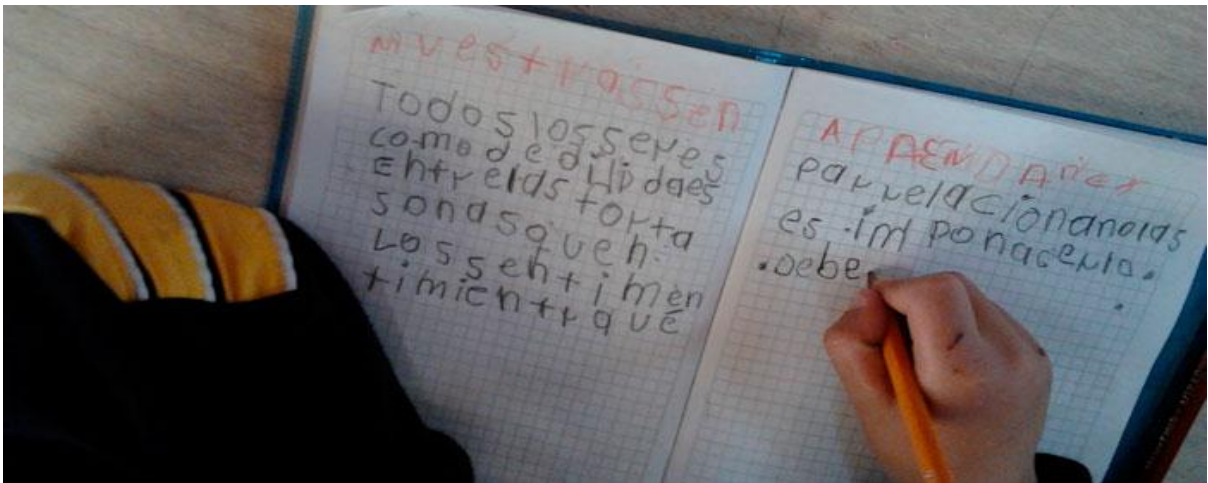 Nvestrassen
Todos losseres
como dedHidaes
Entrelas forta
sonasqueh.
Lossentimen
timientrque
APAEMDA
parrelacionanolas
es.im ponacerlo.
.Deber